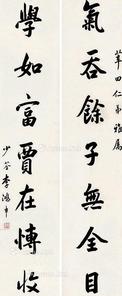 莘田仁弟雅属
氣吞餘子無全目
學如富賈在慱收
少荃李鴻章